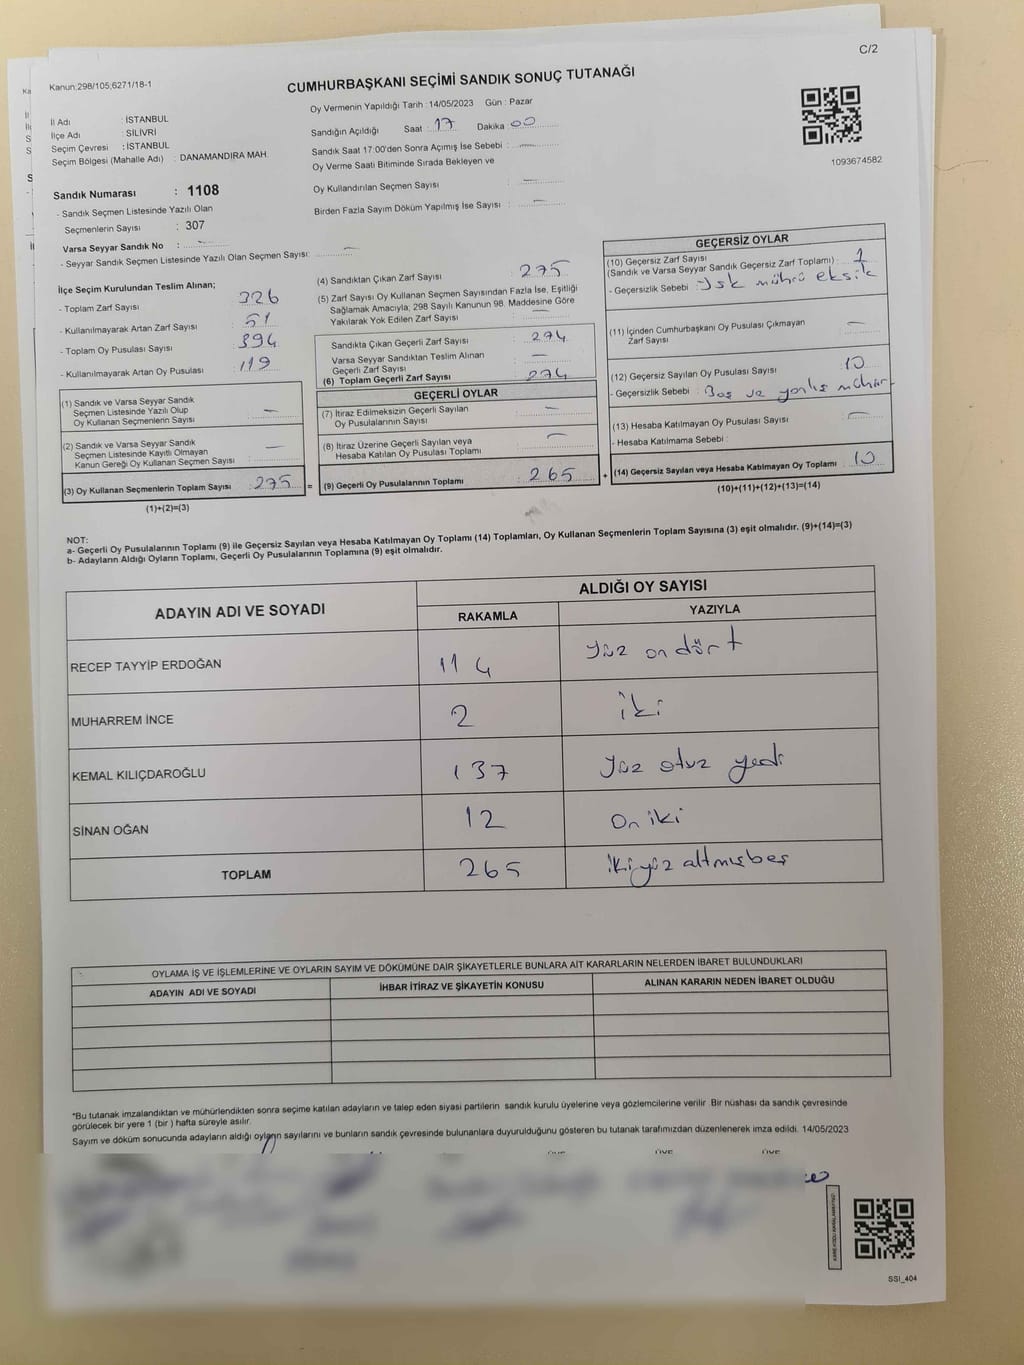 C/2
Kanun:298/105;6271/18-1
CUMHURBAŞKANI SEÇİMİ SANDIK SONUÇ TUTANAĞI
Oy Vermenin Yapıldığı Tarih : 14/05/2023 Gün : Pazar
İl Adı : İSTANBUL
İlçe Adı : SİLİVRİ
Seçim Çevresi : İSTANBUL
Seçim Bölgesi (Mahalle Adı) : DANAMANDIRA MAH.
Sandığın Açıldığı Saat : 17 Dakika : 00
Sandık Saat 17:00'den Sonra Açılmış İse Sebebi : —
Oy Verme Saati Bitiminde Sırada Bekleyen ve
Oy Kullandırılan Seçmen Sayısı : —
Birden Fazla Sayım Döküm Yapılmış İse Sayısı : —
1093674582
Sandık Numarası : 1108
- Sandık Seçmen Listesinde Yazılı Olan
Seçmenlerin Sayısı : 307
Varsa Seyyar Sandık No : —
- Seyyar Sandık Seçmen Listesinde Yazılı Olan Seçmen Sayısı: —
İlçe Seçim Kurulundan Teslim Alınan;
- Toplam Zarf Sayısı 326
- Kullanılmayarak Artan Zarf Sayısı : 51
- Toplam Oy Pusulası Sayısı 394
- Kullanılmayarak Artan Oy Pusulası : 119
(1) Sandık ve Varsa Seyyar Sandık
Seçmen Listesinde Yazılı Olup
Oy Kullanan Seçmenlerin Sayısı : —
(2) Sandık ve Varsa Seyyar Sandık
Seçmen Listesinde Kayıtlı Olmayan
Kanun Gereği Oy Kullanan Seçmen Sayısı : —
(3) Oy Kullanan Seçmenlerin Toplam Sayısı : 275 =
(1)+(2)=(3)
(4) Sandıktan Çıkan Zarf Sayısı : 275
(5) Zarf Sayısı Oy Kullanan Seçmen Sayısından Fazla İse, Eşitliği
Sağlamak Amacıyla; 298 Sayılı Kanunun 98. Maddesine Göre
Yakılarak Yok Edilen Zarf Sayısı : —
Sandıkta Çıkan Geçerli Zarf Sayısı : 274
Varsa Seyyar Sandıktan Teslim Alınan
Geçerli Zarf Sayısı : —
(6) Toplam Geçerli Zarf Sayısı : 274
GEÇERLİ OYLAR
(7) İtiraz Edilmeksizin Geçerli Sayılan
Oy Pusulalarının Sayısı : —
(8) İtiraz Üzerine Geçerli Sayılan veya
Hesaba Katılan Oy Pusulası Toplamı : —
(9) Geçerli Oy Pusulalarının Toplamı : 265 +
GEÇERSİZ OYLAR
(10) Geçersiz Zarf Sayısı
(Sandık ve Varsa Seyyar Sandık Geçersiz Zarf Toplamı) : 1
- Geçersizlik Sebebi : Ysk mührü eksik
(11) İçinden Cumhurbaşkanı Oy Pusulası Çıkmayan
Zarf Sayısı : —
(12) Geçersiz Sayılan Oy Pusulası Sayısı : 10
- Geçersizlik Sebebi : Boş ve yanlış mühür
(13) Hesaba Katılmayan Oy Pusulası Sayısı : —
- Hesaba Katılmama Sebebi :
(14) Geçersiz Sayılan veya Hesaba Katılmayan Oy Toplamı : 10
(10)+(11)+(12)+(13)=(14)
NOT:
a- Geçerli Oy Pusulalarının Toplamı (9) ile Geçersiz Sayılan veya Hesaba Katılmayan Oy Toplamı (14) Toplamları, Oy Kullanan Seçmenlerin Toplam Sayısına (3) eşit olmalıdır. (9)+(14)=(3)
b- Adayların Aldığı Oyların Toplamı, Geçerli Oy Pusulalarının Toplamına (9) eşit olmalıdır.
ADAYIN ADI VE SOYADI ALDIĞI OY SAYISI
RAKAMLA YAZIYLA
RECEP TAYYİP ERDOĞAN 114 Yüz on dört
MUHARREM İNCE 2 iki
KEMAL KILIÇDAROĞLU 137 Yüz otuz yedi
SİNAN OĞAN 12 On iki
TOPLAM 265 ikiyüz altmışbeş
OYLAMA İŞ VE İŞLEMLERİNE VE OYLARIN SAYIM VE DÖKÜMÜNE DAİR ŞİKAYETLERLE BUNLARA AİT KARARLARIN NELERDEN İBARET BULUNDUKLARI
ADAYIN ADI VE SOYADI İHBAR İTİRAZ VE ŞİKAYETİN KONUSU ALINAN KARARIN NEDEN İBARET OLDUĞU
*Bu tutanak imzalandıktan ve mühürlendikten sonra seçime katılan adayların ve talep eden siyasi partilerin sandık kurulu üyelerine veya gözlemcilerine verilir .Bir nüshası da sandık çevresinde
görülecek bir yere 1 (bir ) hafta süreyle asılır.
Sayım ve döküm sonucunda adayların aldığı oyların sayılarını ve bunların sandık çevresinde bulunanlara duyurulduğunu gösteren bu tutanak tarafımızdan düzenlenerek imza edildi. 14/05/2023
SSI_404